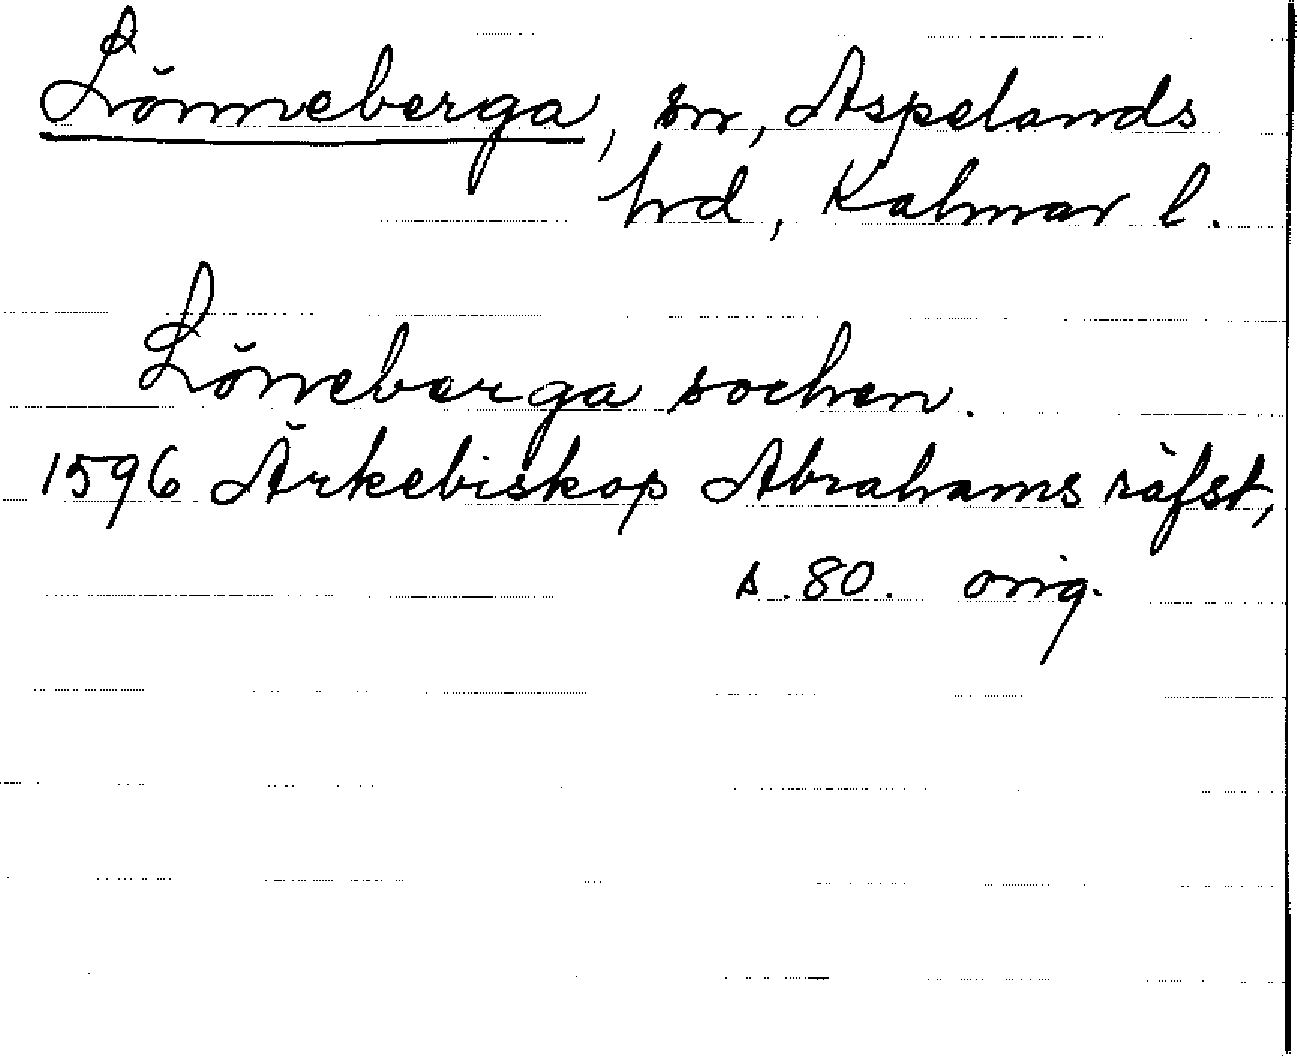 Lönneberga, sn, Aspelands
hrd, Kalmar l.
Löneberga sochen.
1596 Ärkebiskop Abrahams räfst,
s. 80. orig.